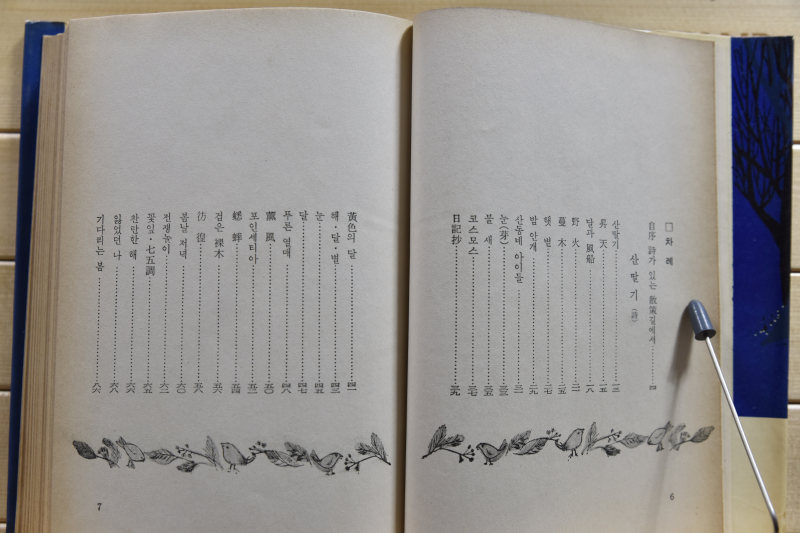 □ 차 례
自序 詩가 있는 散策길에서……四
산 딸 기 (詩)
산딸기……一三
昊 天……一五
달과 風船……一八
野 火……
蔓 木……二五
햇 볕……二七
밤 안개……二九
산동네 아이들……三一
눈(芽)……三三
물 새……三五
코스모스……三七
日記抄……三九
6
黃色의 달……四一
해·달·별……四三
눈……四五
달……四七
푸른 열매……四八
薰 風……五〇
포인세티아……五二
蟋 蟀……五四
검은 裸木……五六
彷 徨……五八
봄날 저녁……六〇
전쟁놀이……六二
꽃잎·七五調……六五
찬란한 해……六六
잃었던 나……六八
기다리는 봄……
7